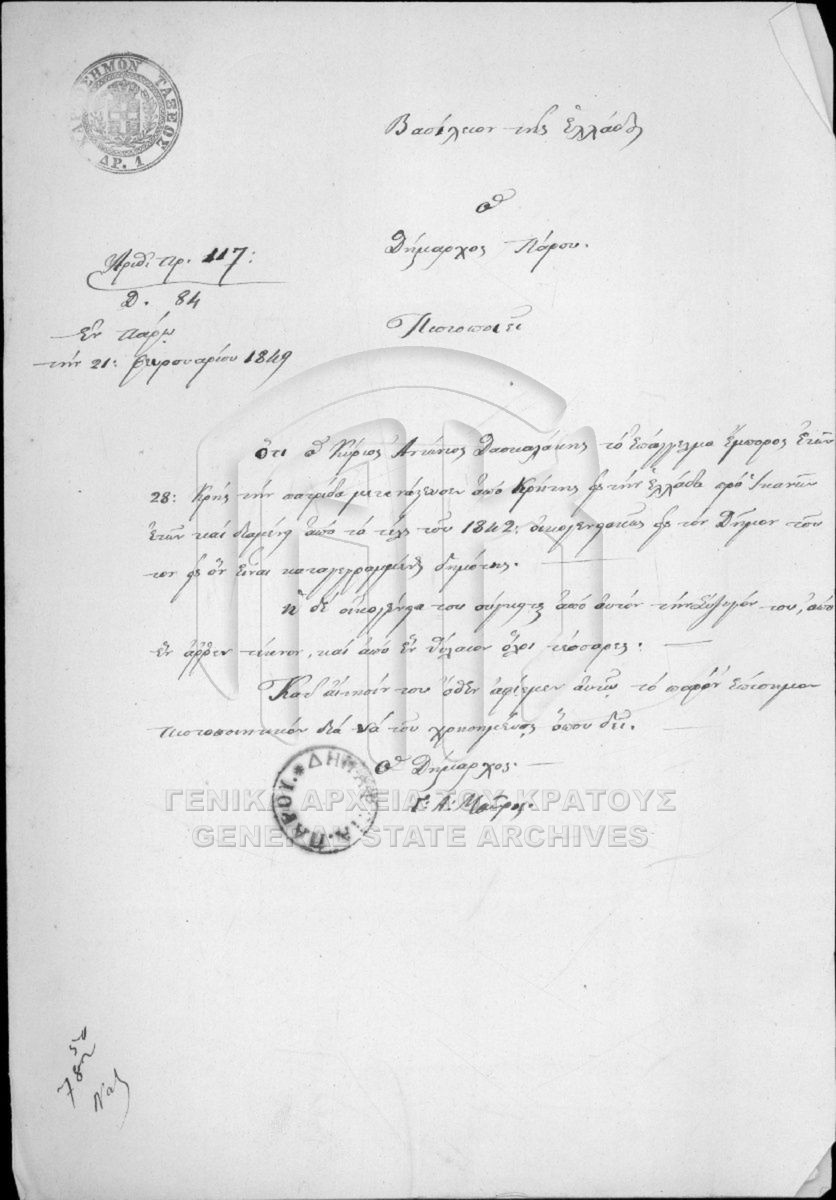 ΧΑΡΤΟΣΗΜΟΝ ΤΑΞΕΩΣ
ΔΡ. 1
Βασίλειον της Ελλάδος
Ο
Δήμαρχος Πάρου.
Αριθ. Πρ. 117:
Δ. 84
Εν Πάρω
την 21: Φευρουαρίου 1849
Πιστοποιεί
Ότι ο Κύριος Αντώνιος Δασκαλάκης το επάγγελμα έμπορος ετών
28: Κρης την πατρίδα μετανάστευσεν από Κρήτης εις την Ελλάδα προ ικανών
ετών και διαμένει από το τέλος του 1842: οικογενειακώς εις τον Δήμον του
τον εις ον είναι καταγεγραμμένος δημότης.
Η δε οικογένεια του σύγκειται από αυτόν την σύζυγόν του, από
εν άρρεν τέκνον, και από εν θήλυ όλοι τέσσαρες.
Κατ' αίτησίν του όθεν αφίεμεν αυτώ το παρόν επίσημον
πιστοποιητικόν διά να του χρησιμεύση όπου δει.
Ο Δήμαρχος.
Γ. Α. Μαύρος.
ΔΗΜΑΡΧΙΑ. ΠΑΡΟΥ.
ΓΕΝΙΚΑ ΑΡΧΕΙΑ ΤΟΥ ΚΡΑΤΟΥΣ
GENERAL STATE ARCHIVES